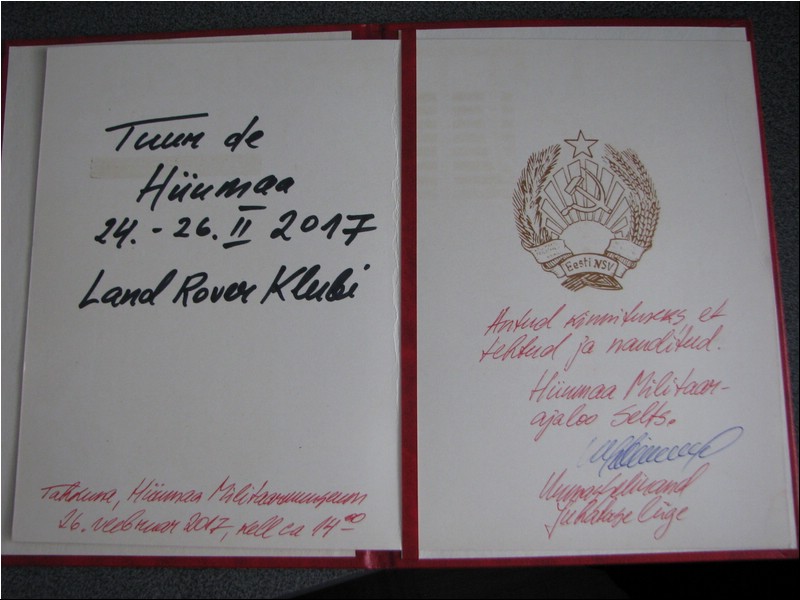 Tuur de
Hiiumaa
24. - 26. II 2017
Land Rover Klubi
Tahkuna, Hiiumaa Militaarmuuseum
26. veebruar 2017, kell ca 14 00
Eesti NSV
Antud kinnituseks, et
tehtud ja nauditud.
Hiiumaa Militaar-
ajaloo Selts.
juhatuse liige